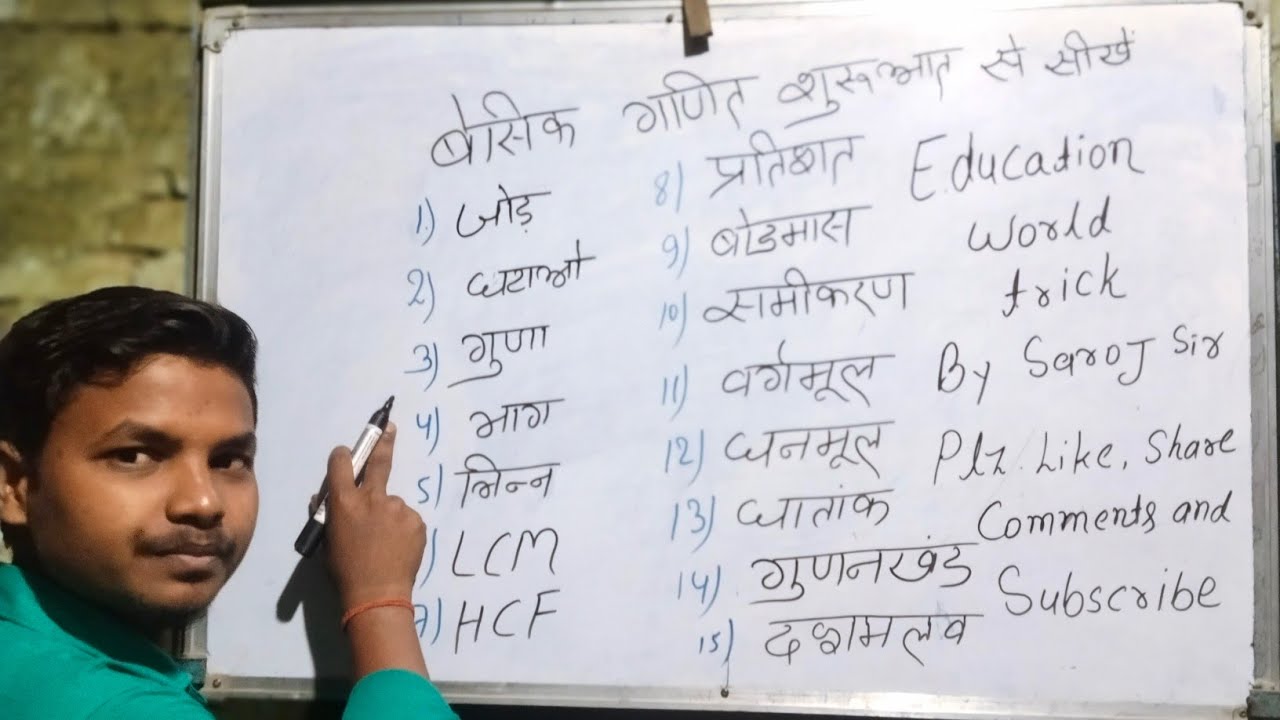 बेसिक गणित शुरूआत से सीखें
1.) जोड़
2) घटाओ
3) गुणा
4) भाग
5) भिन्न
) LCM
7) HCF
8) प्रतिशत
9) बोडमास
10) समीकरण
11) वर्गमूल
12) घनमूल
13) घातांक
14) गुणनखंड
15) दशमलव
Education
World
trick
By Saroj Sir
Plz. Like, Share
Comments and
Subscribe